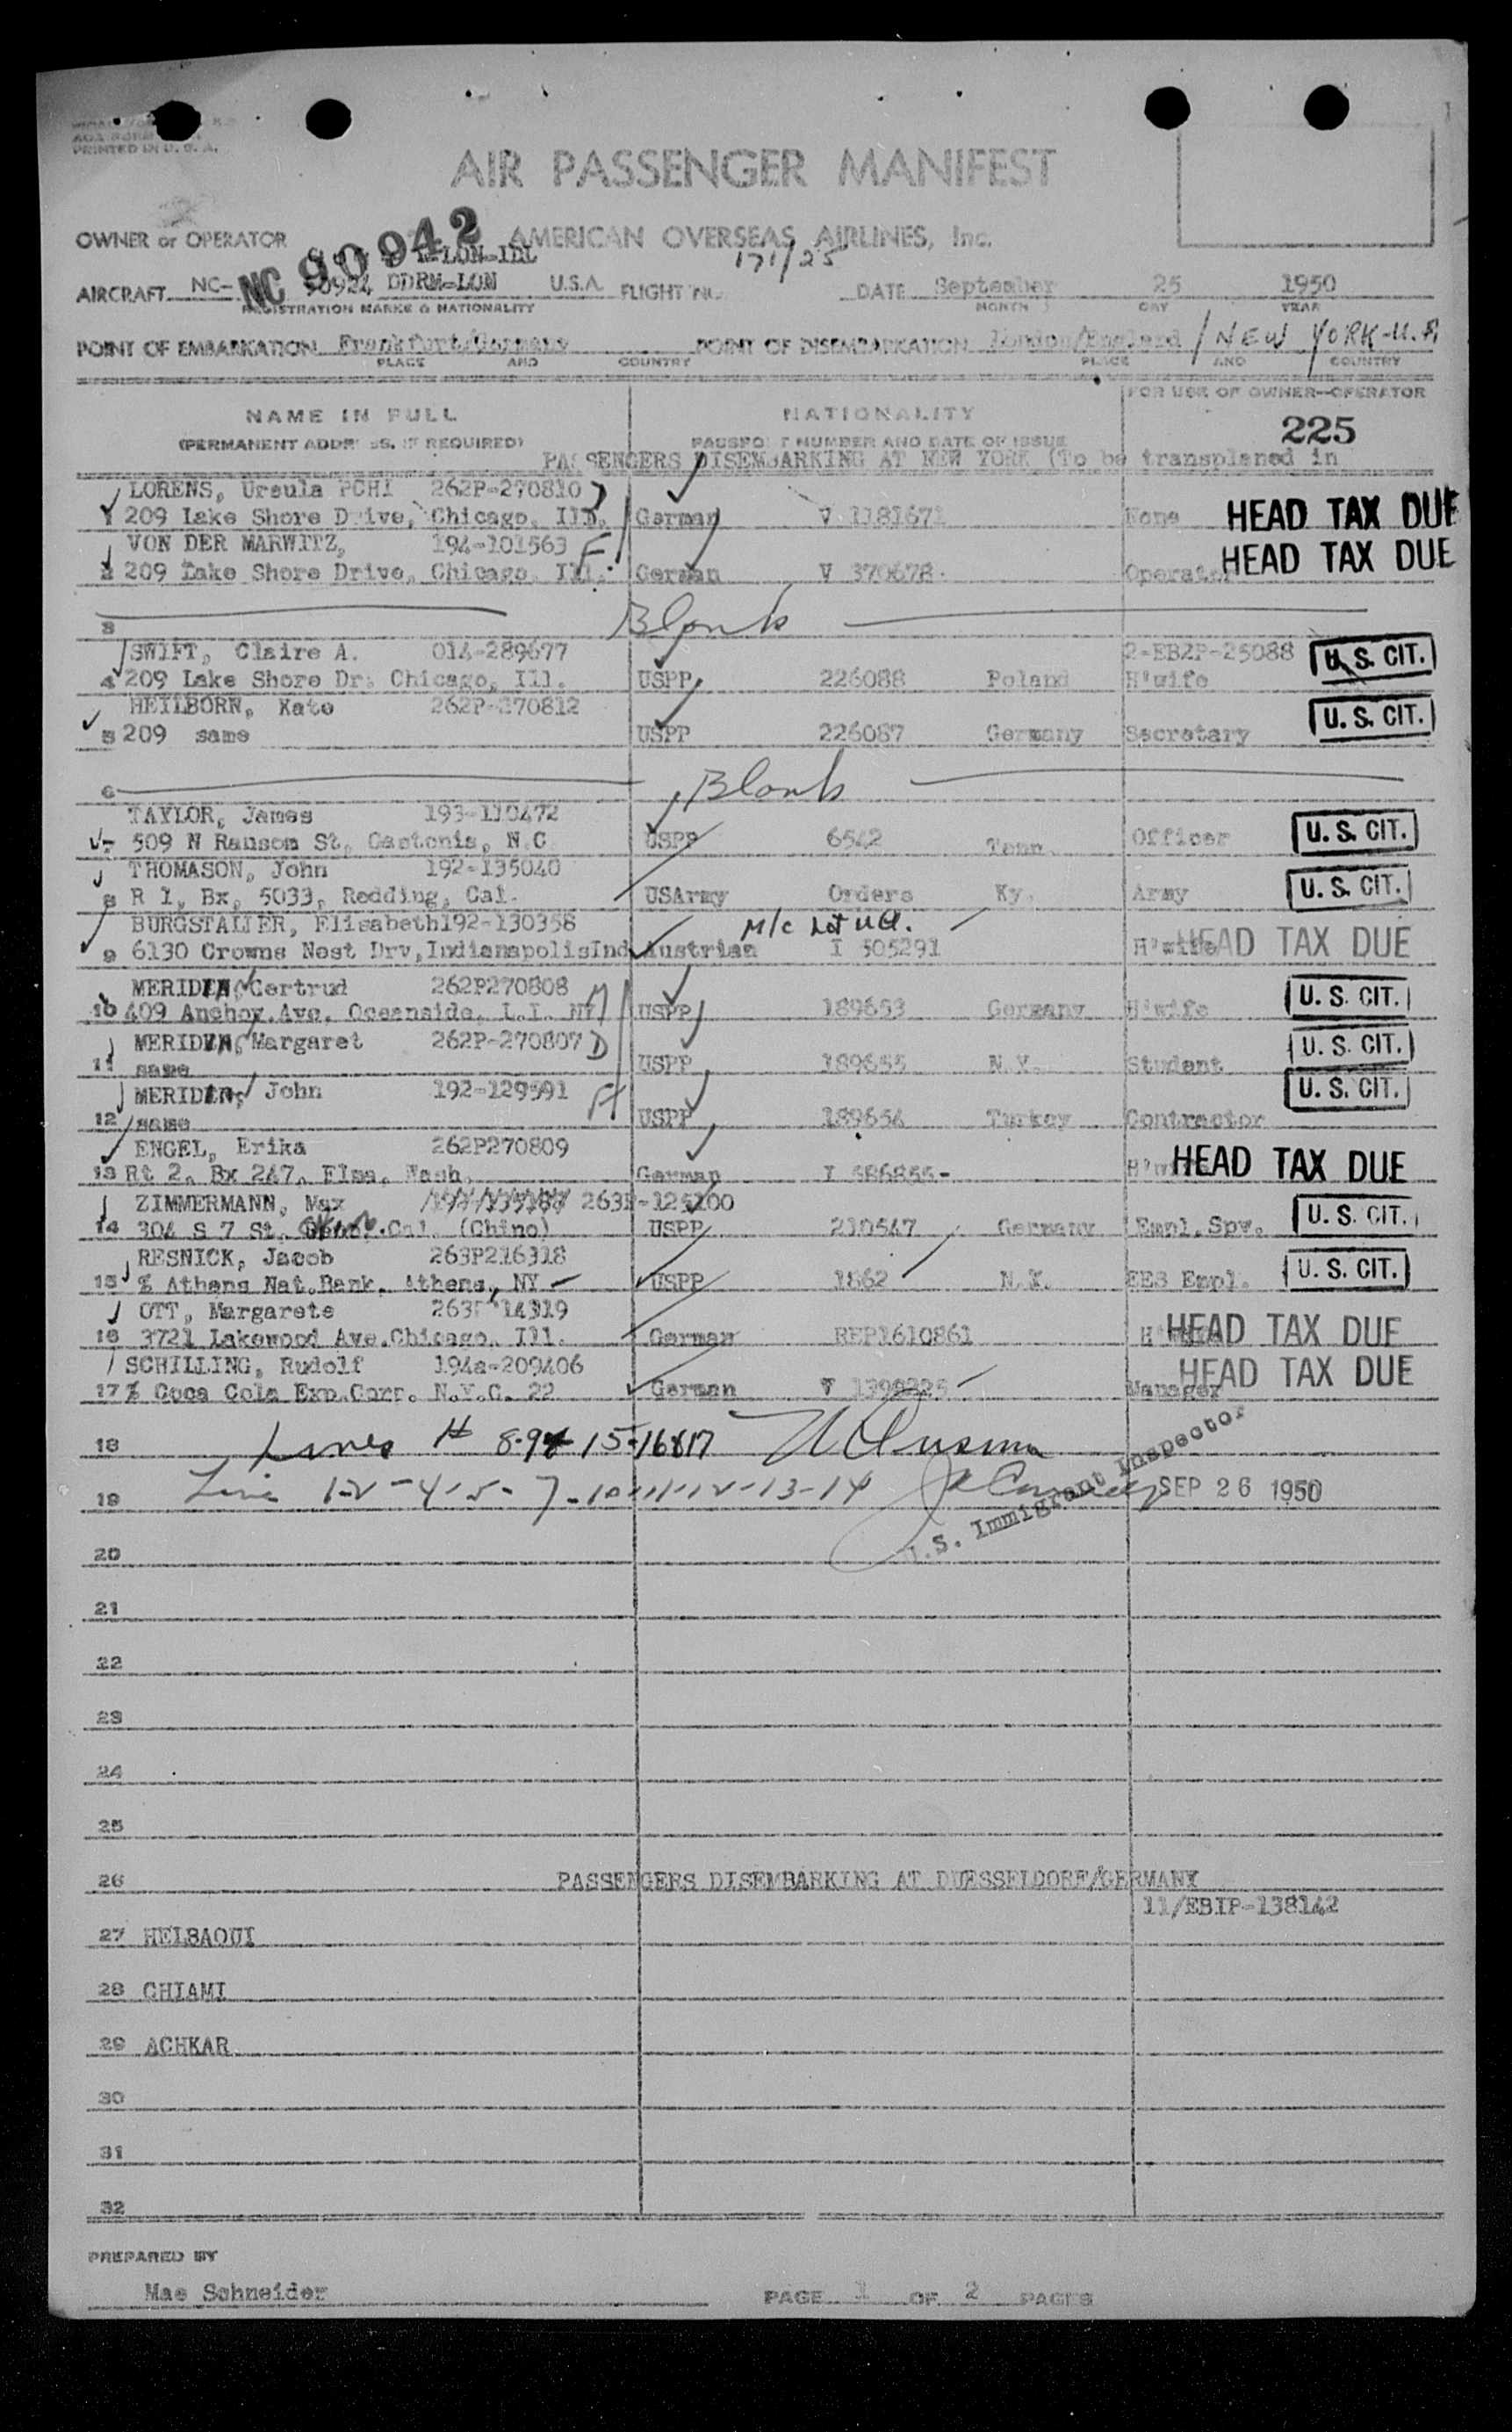 PRINTED IN U. S. A.
AIR PASSENGER MANIFEST
OWNER or OPERATOR AMERICAN OVERSEAS AIRLINES, Inc.
NC 90942
LON-IDL
171/25
AIRCRAFT NC- 90924 DDRM-LON U.S.A. FLIGHT NO. DATE September 25 1950
REGISTRATION MARKS & NATIONALITY MONTH DAY YEAR
POINT OF EMBARKATION Frankfurt/Germany POINT OF DISEMBARKATION London/England / NEW YORK-U.A
PLACE AND COUNTRY PLACE AND COUNTRY
FOR USE OF OWNER-OPERATOR
NAME IN FULL NATIONALITY
225
(PERMANENT ADDRESS, IF REQUIRED) PASSPORT NUMBER AND DATE OF ISSUE
PASSENGERS DISEMBARKING AT NEW YORK (To be transplaned in
LORENS, Ursula POHI 262P-270810
1 209 Lake Shore Drive, Chicago, Ill. German V 1181671 None HEAD TAX DUE
VON DER MARWITZ, 194-101563 F
2 209 Lake Shore Drive, Chicago, Ill. German V 370678. Operator HEAD TAX DUE
3 Blank
SWIFT, Claire A. 014-289677 2-EB2P-25088 U. S. CIT.
4 209 Lake Shore Dr. Chicago, Ill. USPP 226088 Poland H'wife
HEILBORN, Kate 262P-270812 U. S. CIT.
5 209 same USPP 226087 Germany Secretary
6 Blank
TAYLOR, James 193-110472
7 509 N Ransom St, Gastonia, N.C. USPP 6542 Tenn. Officer U. S. CIT.
THOMASON, John 192-135040
8 R 1, Bx, 5033, Redding, Cal. USArmy Orders Ky. Army U. S. CIT.
BURGSTALLER, Elisabeth192-130358
9 6130 Crowns Nest Drv,IndianapolisInd Austrian I 505291 H'wife HEAD TAX DUE
MERIDIN, Gertrud 262P270808
10 409 Anchor Ave. Oceanside, L.I. NY USPP 189653 Germany H'wife U. S. CIT.
MERIDIN, Margaret 262P-270807 D
11 same USPP 189655 N.Y. Student U. S. CIT.
MERIDIN, John 192-129591 H
12 same USPP 189654 Turkey Contractor U. S. CIT.
ENGEL, Erika 262P270809
13 Rt 2, Bx 247, Elma, Wash. German I 586855- H'wife HEAD TAX DUE
ZIMMERMANN, Max 263P-125100
14 304 S 7 St. Cal. (Chino) USPP 210547 Germany Empl.Spv. U. S. CIT.
RESNICK, Jacob 263P216318
15 % Athens Nat.Bank, Athens, NY USPP 1862 N.Y. EES Empl. U. S. CIT.
OTT, Margarete 263P214319
16 3721 Lakewood Ave.Chicago, Ill. German REP1610861 HEAD TAX DUE
SCHILLING, Rudolf 194a-209406
17 % Coca Cola Exp.Corp. N.Y.C. 22 German V Manager HEAD TAX DUE
18 Lines # 8-9 15-16&17
19 Line 1-2-4-5-7-10-11-12-13-14 SEP 26 1950
U.S. Immigrant Inspector
20
21
22
23
24
25
26 PASSENGERS DISEMBARKING AT DUESSELDORF/GERMANY
11/EBIP-138142
27 HELBAOUI
28 CHIAMI
29 ACHKAR
30
31
32
PREPARED BY
Mae Schneider PAGE 1 OF 2 PAGES